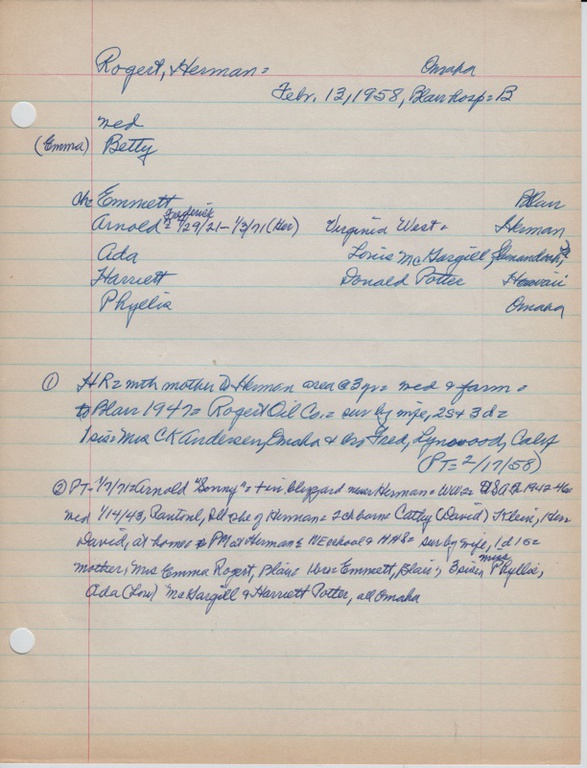 Rogert, Herman = Omaha
Febr. 13, 1958, Blair hosp = B
med
(Emma) Betty
ch Emmett Blair
Arnold Frederick = 1/29/21 - 1/3/71 (Her) Virginia West = Herman
Ada Louis McGargill, Shenandoah,
Harriett Donald Potter Hawaii
Phyllis Omaha
① HR = with mother to Herman area @ 3 yr = med & farm =
to Blair 1947 = Rogert Oil Co. = sur by wife, 2s & 3d =
1 sis = Mrs CK Andersen, Omaha & bro Fred, Lynwood, Calif
(PT = 2/17/58)
② PT - 1/7/71 = Arnold "Sonny" = + in blizzard near Herman = WW2 = USA 1942-46 =
med 1/14/43, Rantoul, Ill = of Herman = 2 ch borne Cathy (David) Klein, Her
David, at home = PM at Herman = NE school & HHS = sur by wife, 1d 1s =
mother, Mrs Emma Rogert, Blair bro = Emmett, Blair, 3 sis = miss Phyllis,
Ada (Lou) McGargill & Harriett Potter, all Omaha